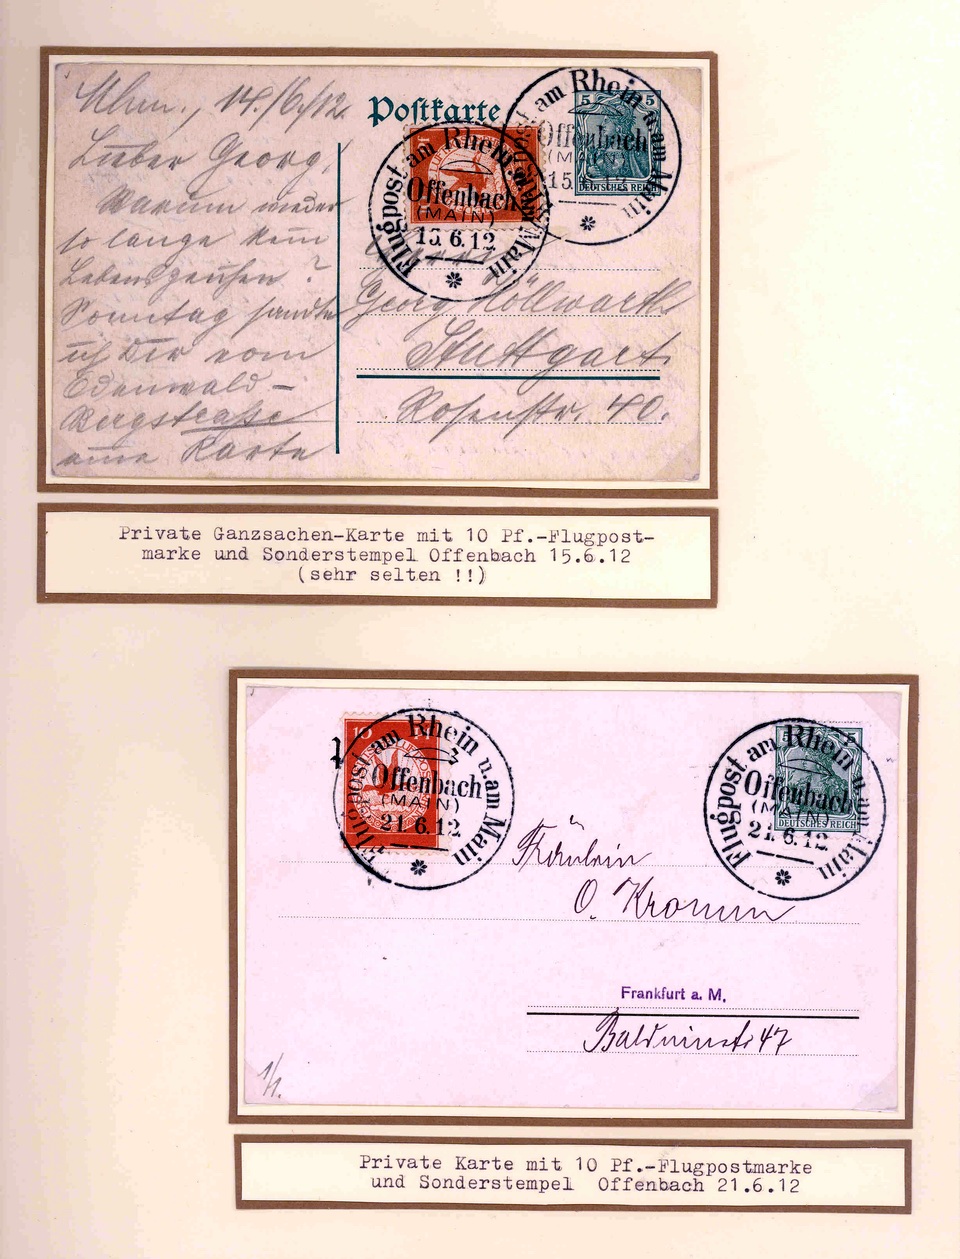 Ulm., 14./6./12.
Lieber Georg,
Warum wieder
so lange kein
Lebenszeichen?
Sonntag sandte
ich Dir vom
Odenwald-
Bergstrasse
eine Karte
Postkarte
Flugpost am Rhein u. am Main
Offenbach
(MAIN)
15.6.12
5 5
DEUTSCHES REICH
Flugpost am Rhein u. am Main
Offenbach
(MAIN)
15.6.12
Herrn
Georg Höllwarth
Stuttgart
Rosenstr. 40.
Private Ganzsachen-Karte mit 10 Pf.-Flugpost-
marke und Sonderstempel Offenbach 15.6.12
(sehr selten !!)
Flugpost am Rhein u. am Main
Offenbach
(MAIN)
21.6.12
5
DEUTSCHES REICH
Flugpost am Rhein u. am Main
Offenbach
(MAIN)
21.6.12
Fräulein
O. Kromm
Frankfurt a. M.
47
1/1.
Private Karte mit 10 Pf.-Flugpostmarke
und Sonderstempel Offenbach 21.6.12